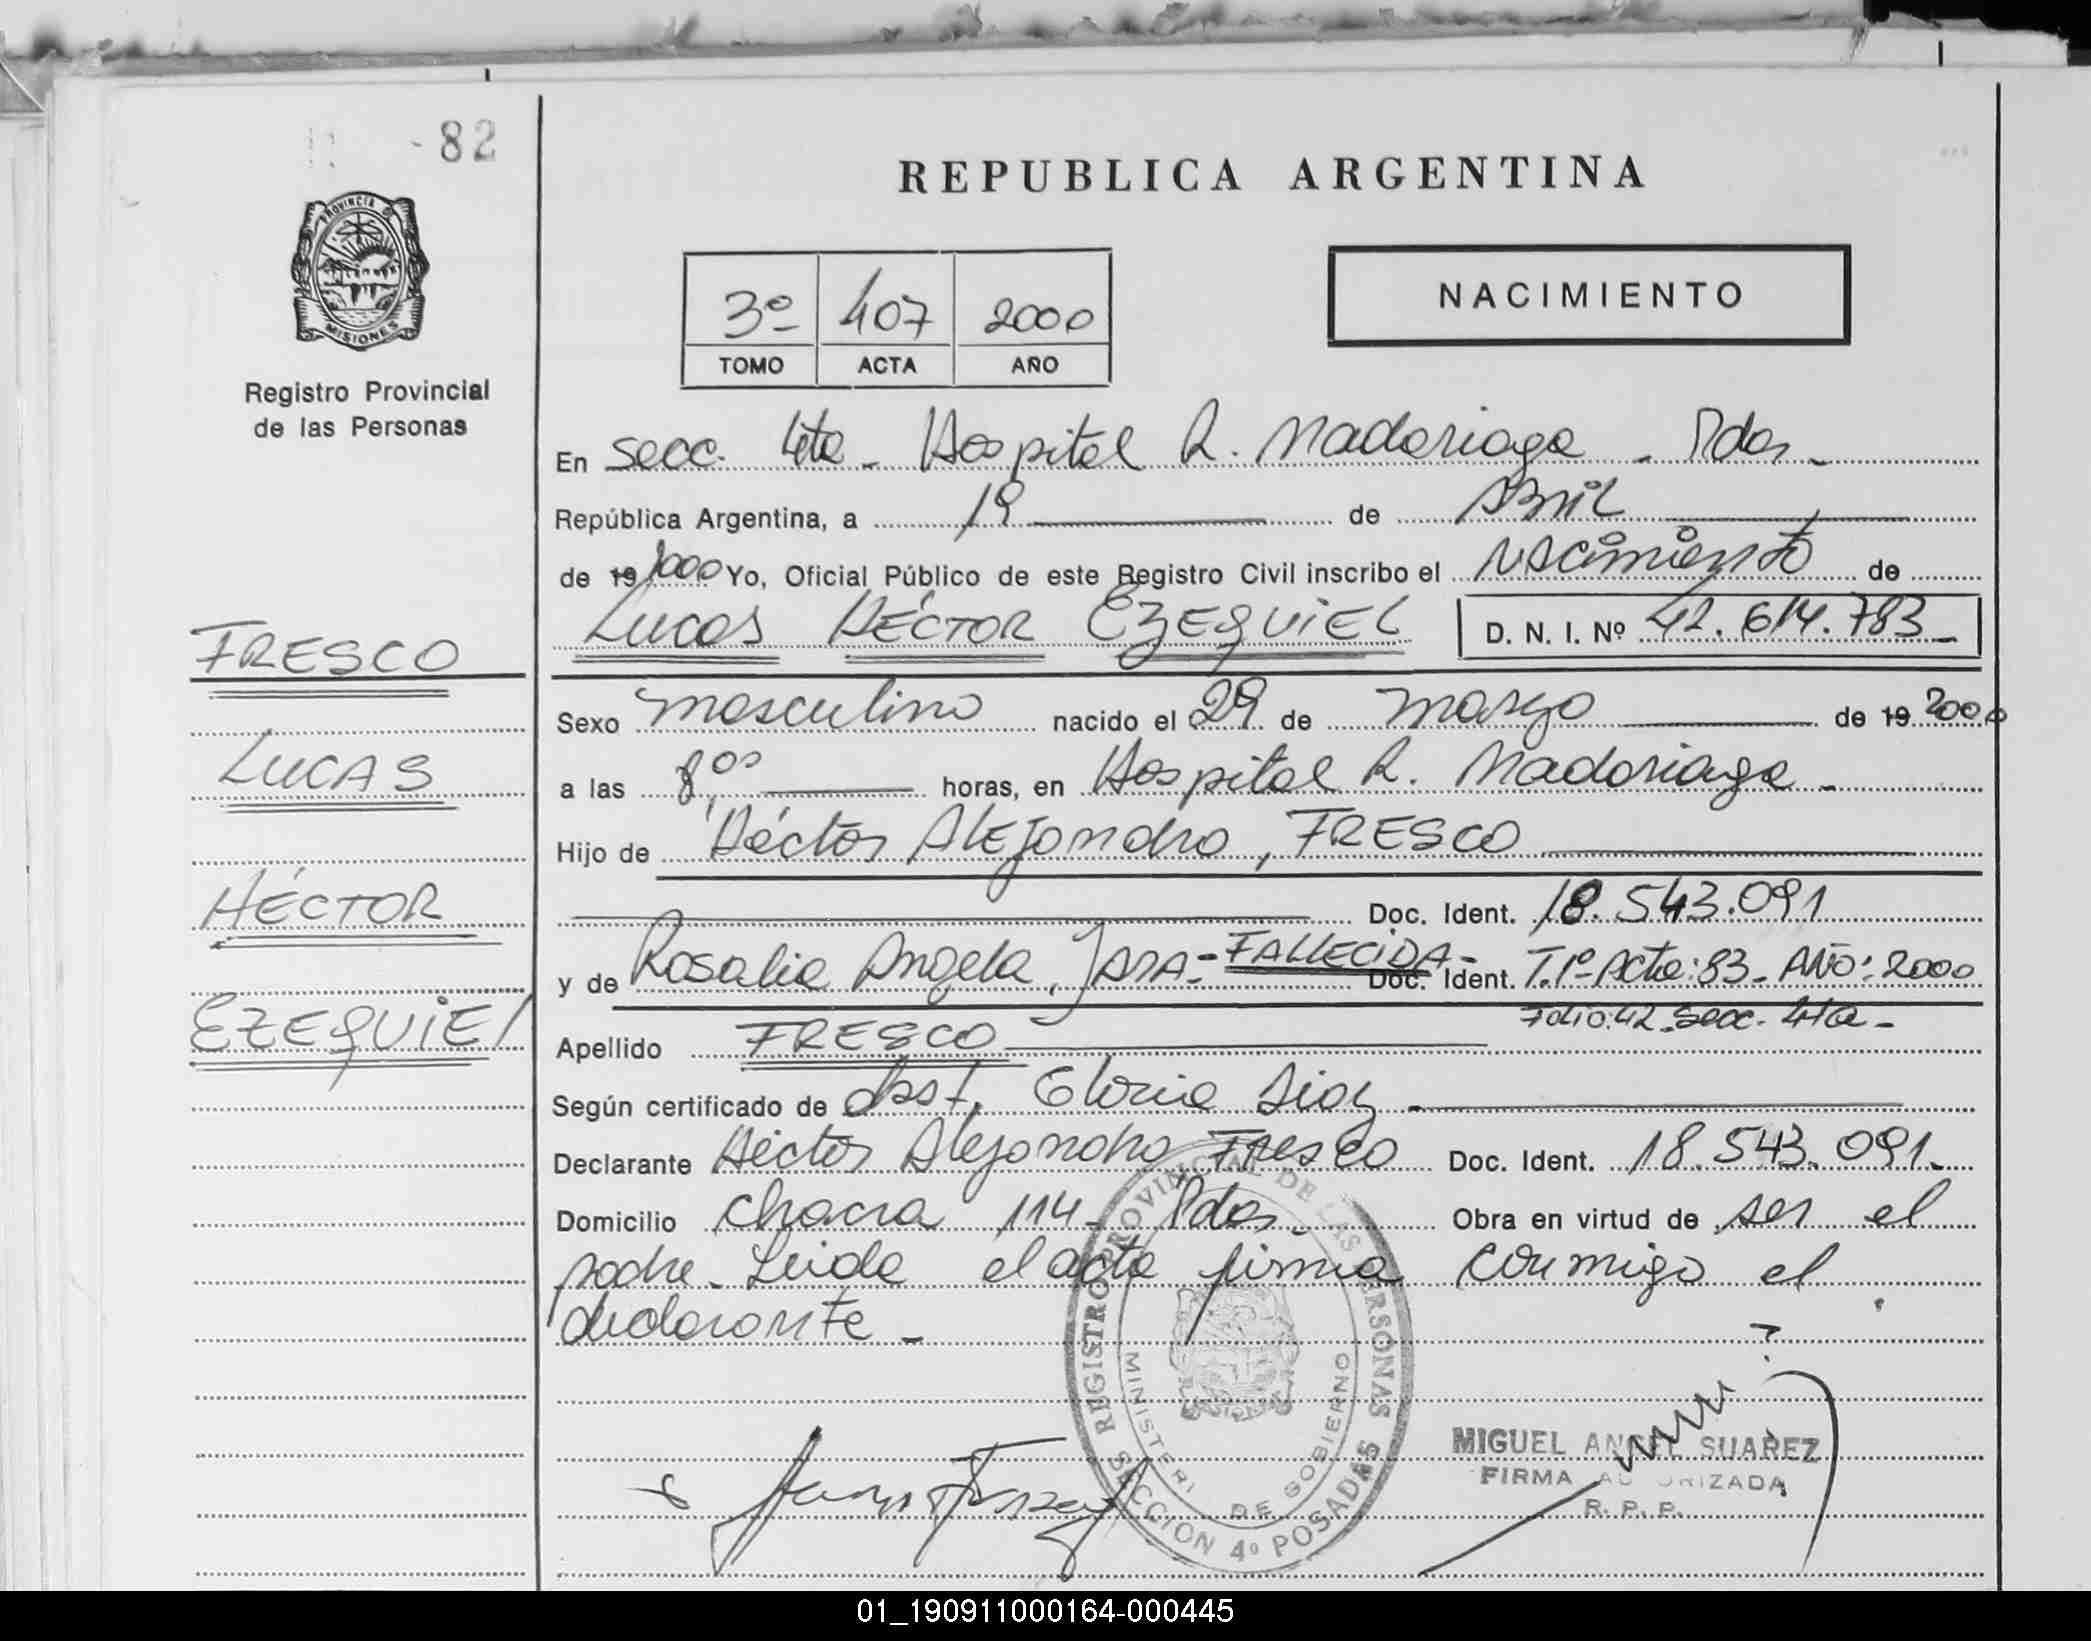 - 82
PROVINCIA DE
MISIONES
Registro Provincial
de las Personas
FRESCO
LUCAS
HÉCTOR
EZEQUIEL
REPUBLICA ARGENTINA
3º 407 2000
TOMO ACTA AÑO
NACIMIENTO
En secc. 4ta - Hospital R. Madariaga - Pdas -
República Argentina, a 19 de Abril
de 19 2000 Yo, Oficial Público de este Registro Civil inscribo el Nacimiento de
Lucas HÉCTOR EZEQUIEL D. N. I. Nº 42.614.783 -
Sexo masculino nacido el 29 de marzo de 19 2000
a las 8,00 horas, en Hospital R. Madariaga -
Hijo de Héctor Alejandro, FRESCO
Doc. Ident. 18.543.091
y de Rosalia Angela, JARA - FALLECIDA - Doc. Ident. T.1º Acta: 83 - AÑO: 2000
Folio: 42 - Secc. 4ta -
Apellido FRESCO
Según certificado de obst. Gloria Diaz -
Declarante Héctor Alejandro Fresco Doc. Ident. 18.543.091 -
Domicilio Chacra 114 - Pdas - Obra en virtud de ser el
padre - Leida el acta firma conmigo el
declarante -
REGISTRO PROVINCIAL DE LAS PERSONAS
MINISTERI DE GOBIERNO
SECCION 4º POSADAS
MIGUEL ANGEL SUAREZ
FIRMA AUTORIZADA
R. P. P.
01_190911000164-000445